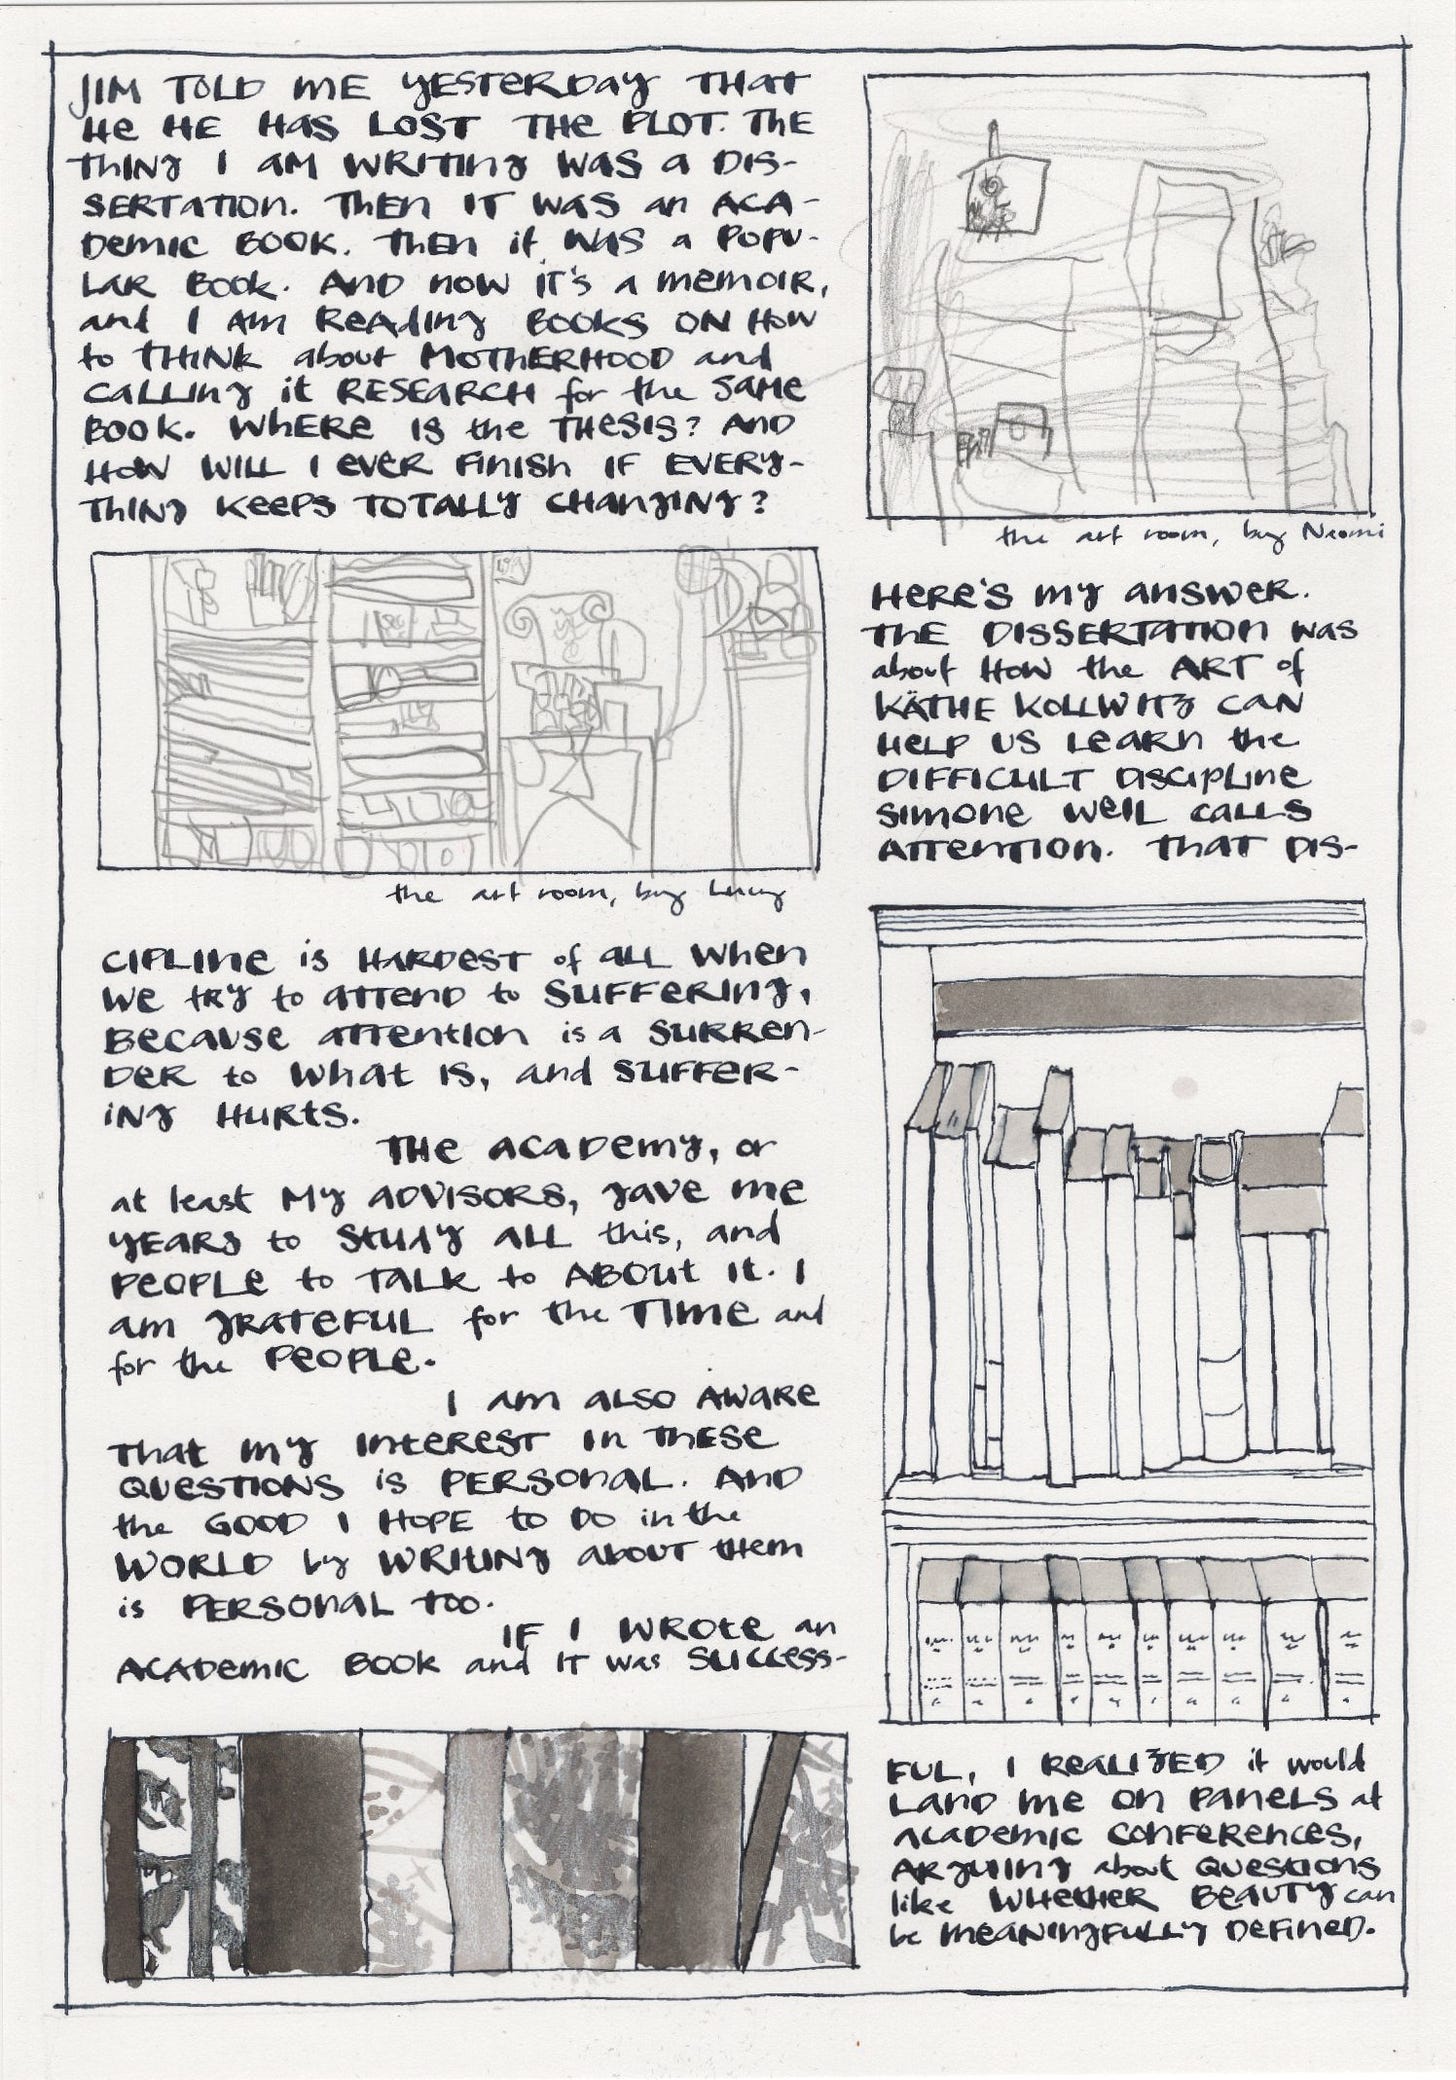 JIM TOLD ME YESTERDAY THAT
He HE HAS LOST THE PLOT. THE
THING I AM WRITING WAS A DIS-
SERTATION. THEN IT WAS an ACA-
DEMIC BOOK. THEN it WAS a POPU-
LAR BOOK. AND now IT'S a memoir,
and I AM READING BOOKS ON HOW
to THINK about MOTHERHOOD and
CALLING it RESEARCH for the SAME
BOOK. WHERE IS the THESIS? AND
HOW WILL I EVER FINISH IF EVERY-
THING KEEPS TOTALLY CHANGING?
the art room, by Naomi
the art room, by Lucy
HERE'S MY ANSWER.
THE DISSERTATION WAS
about HOW the ART of
KÄTHE KOLLWITZ CAN
HELP US LEARN the
DIFFICULT DISCIPLINE
SIMONE WEIL CALLS
ATTENTION. THAT DIS-
CIPLINE is HARDEST of ALL WHEN
WE TRY to ATTEND to SUFFERING,
BECAUSE ATTENTION is a SURREN-
DER to WHAT IS, and SUFFER-
ING HURTS.
THE ACADEMY, or
at least MY ADVISORS, GAVE ME
YEARS to STUDY ALL this, and
PEOPLE to TALK to ABOUT IT. I
am GRATEFUL for the TIME and
for the PEOPLE.
I am ALSO AWARE
THAT MY INTEREST IN THESE
QUESTIONS is PERSONAL. AND
the GOOD I HOPE to DO in the
WORLD by WRITING ABOUT them
is PERSONAL TOO.
IF I WROTE an
ACADEMIC BOOK and IT was SUCCESS-
FUL, I REALIZED it would
LAND ME ON PANELS at
ACADEMIC CONFERENCES,
ARGUING about QUESTIONS
like WHETHER BEAUTY can
be MEANINGFULLY DEFINED.